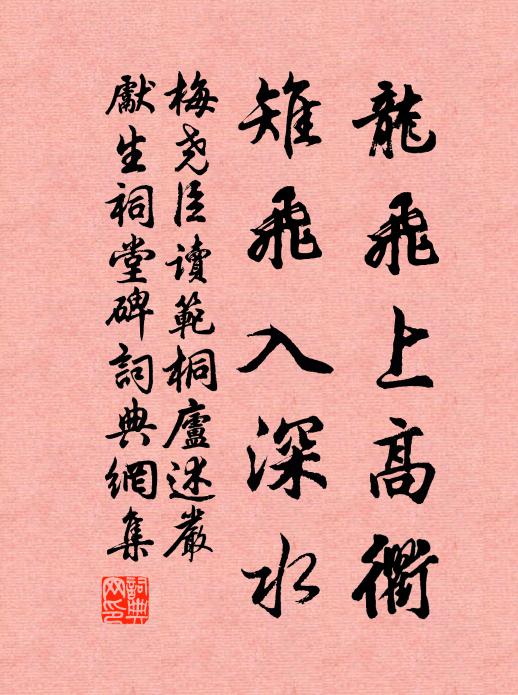 龍飛上高衢
雉飛入深水
梅堯臣讀範桐廬述嚴
獻生祠堂碑詞典網集
詞典網印